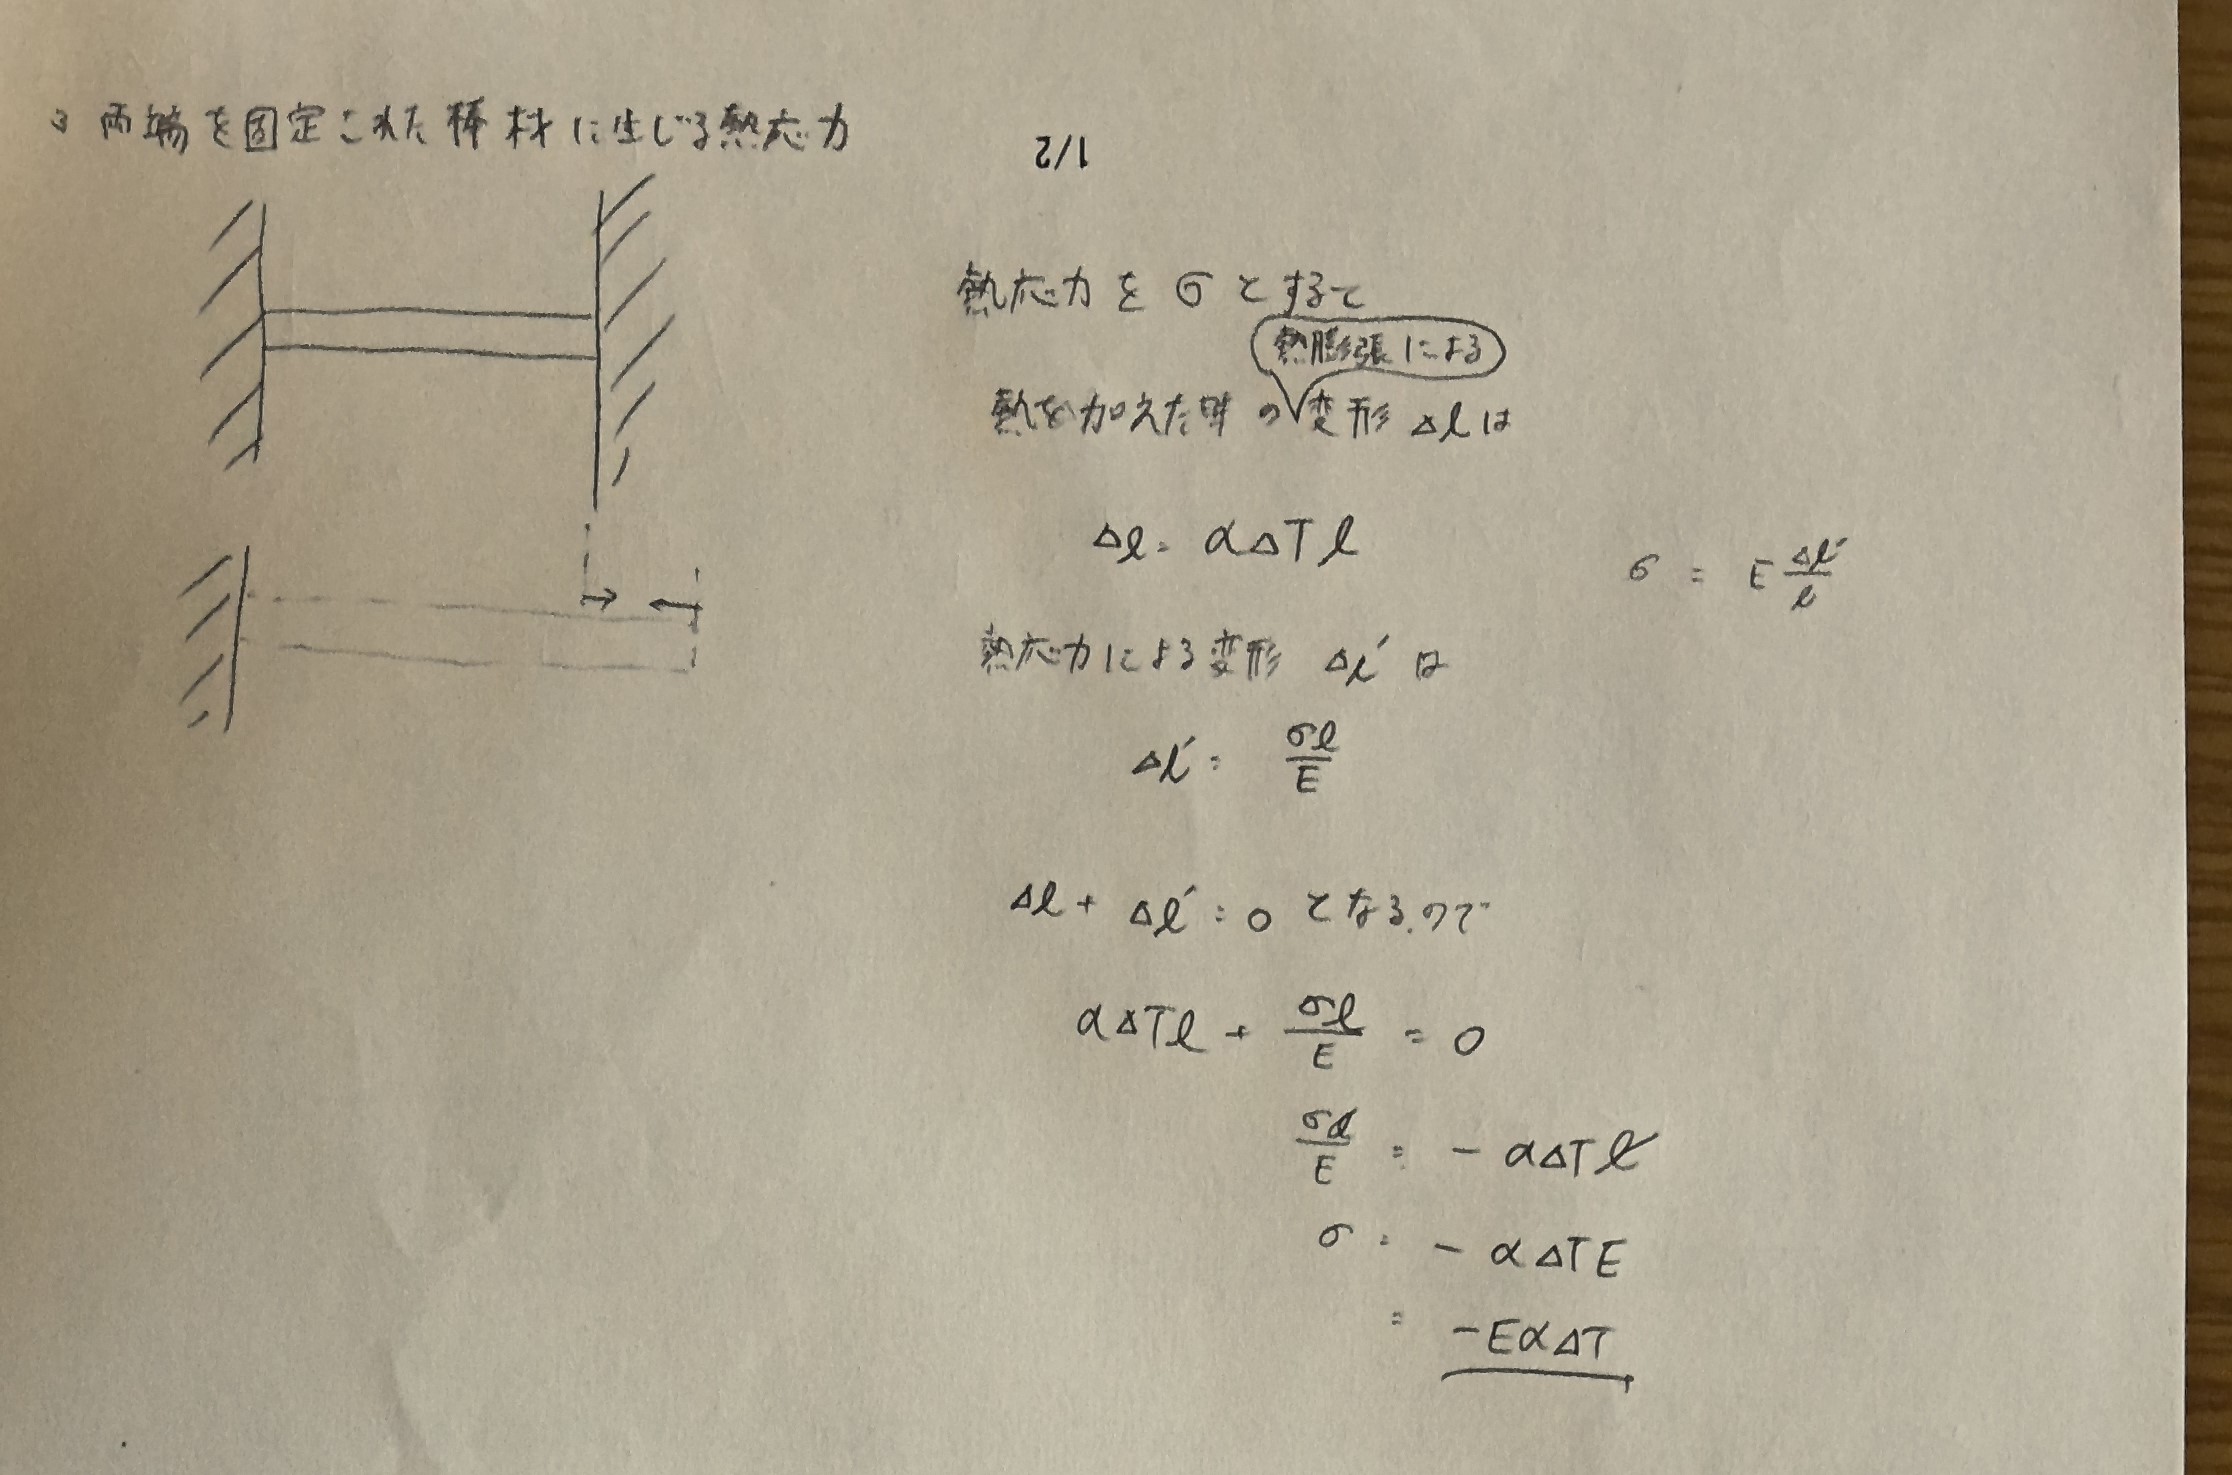 3 両端を固定された棒材に生じる熱応力
1/2
熱応力を σ とすると
熱膨張による
熱を加えた時の変形 Δl は
Δl = αΔTl
σ = E Δl'/l
熱応力による変形 Δl' は
Δl' = σl/E
Δl + Δl' = 0 となるので
αΔTl + σl/E = 0
σl/E = - αΔTl
σ = - αΔTE
= -EαΔT